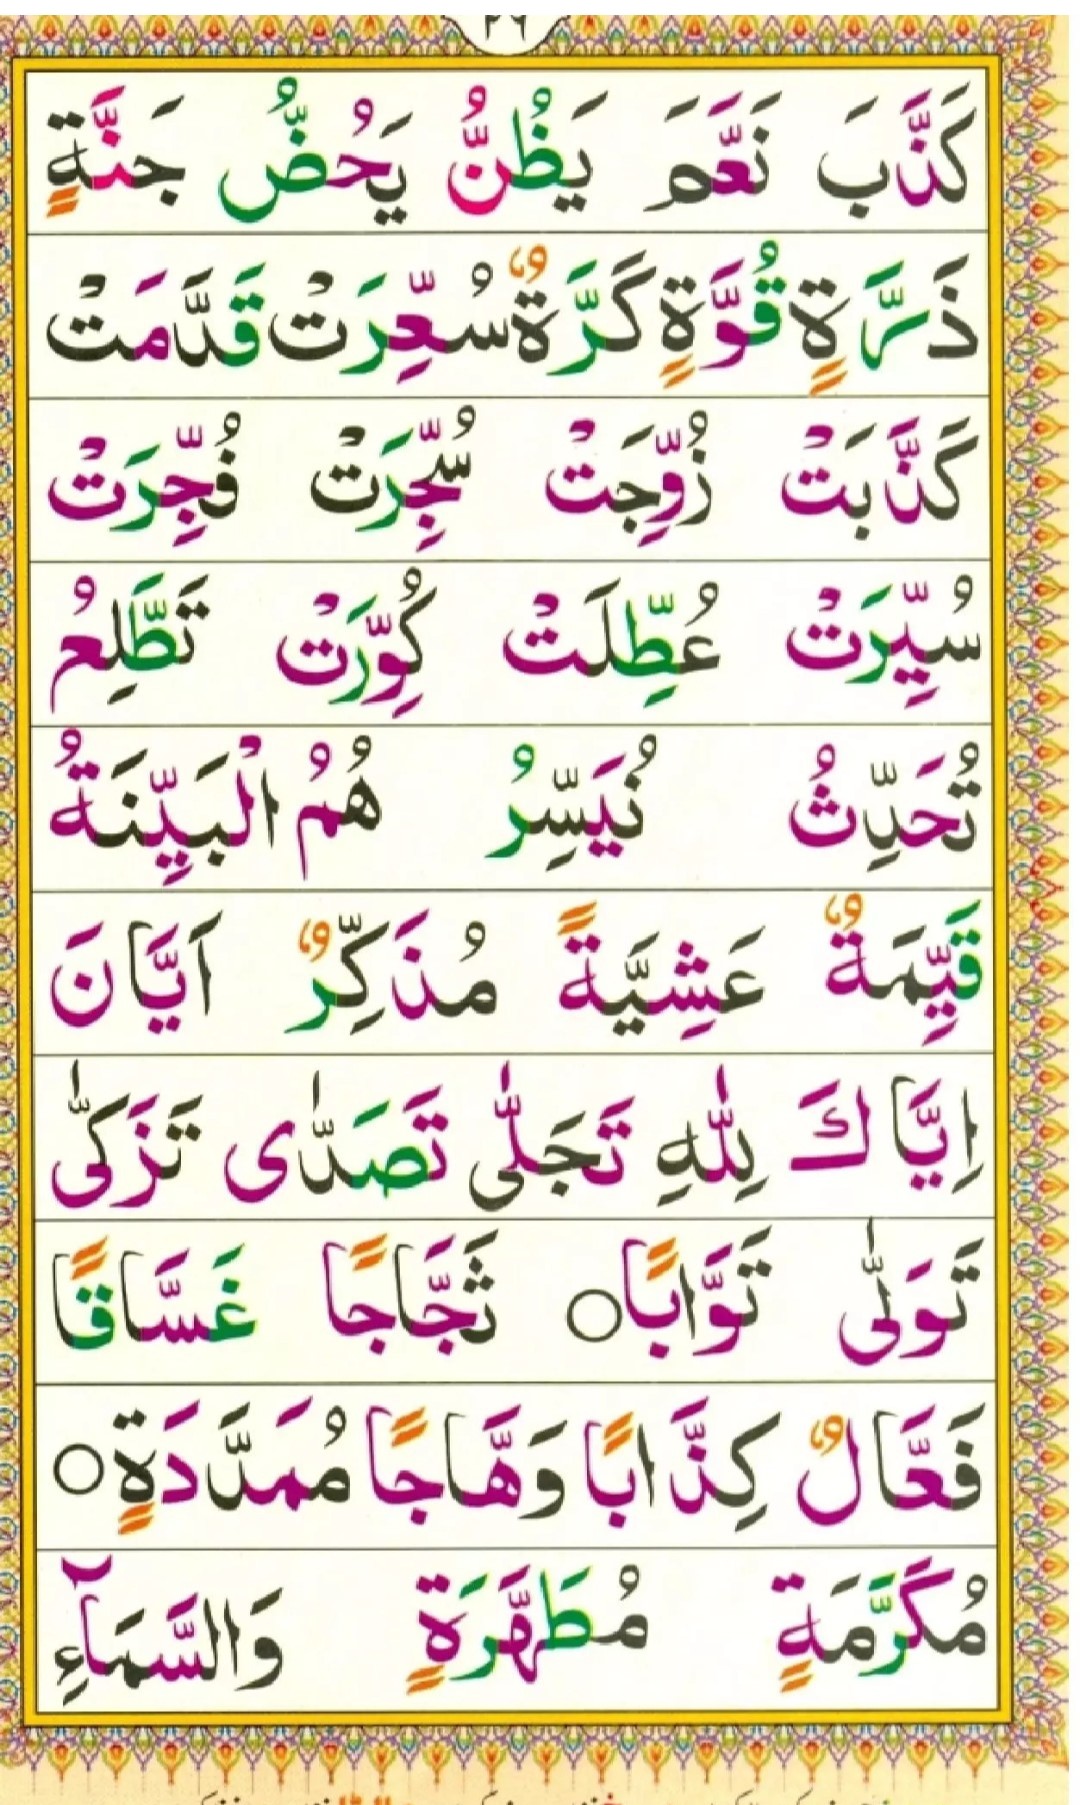 ٢٦
كَذَّبَ نَعَّمَ يَظُنُّ يَحُضُّ جَنَّةٍ
ذَرَّةٍ قُوَّةٍ كَرَّةٌ سُعِّرَتْ قَدَّمَتْ
كَذَّبَتْ زُوِّجَتْ سُجِّرَتْ فُجِّرَتْ
سُيِّرَتْ عُطِّلَتْ كُوِّرَتْ تَطَّلِعُ
تُحَدِّثُ نُيَسِّرُ هُمُ الْبَيِّنَةُ
قَيِّمَةٌ عَشِيَّةً مُذَكِّرٌ اَيَّانَ
اِيَّاكَ لِلّٰهِ تَجَلّٰى تَصَدّٰى تَزَكّٰى
تَوَلّٰى تَوَّابًا○ ثَجَّاجًا غَسَّاقًا
فَعَّالٌ كِذَّابًا وَهَّاجًا مُمَدَّدَةٍ○
مُكَرَّمَةٍ مُطَهَّرَةٍ وَالسَّمَآءِ